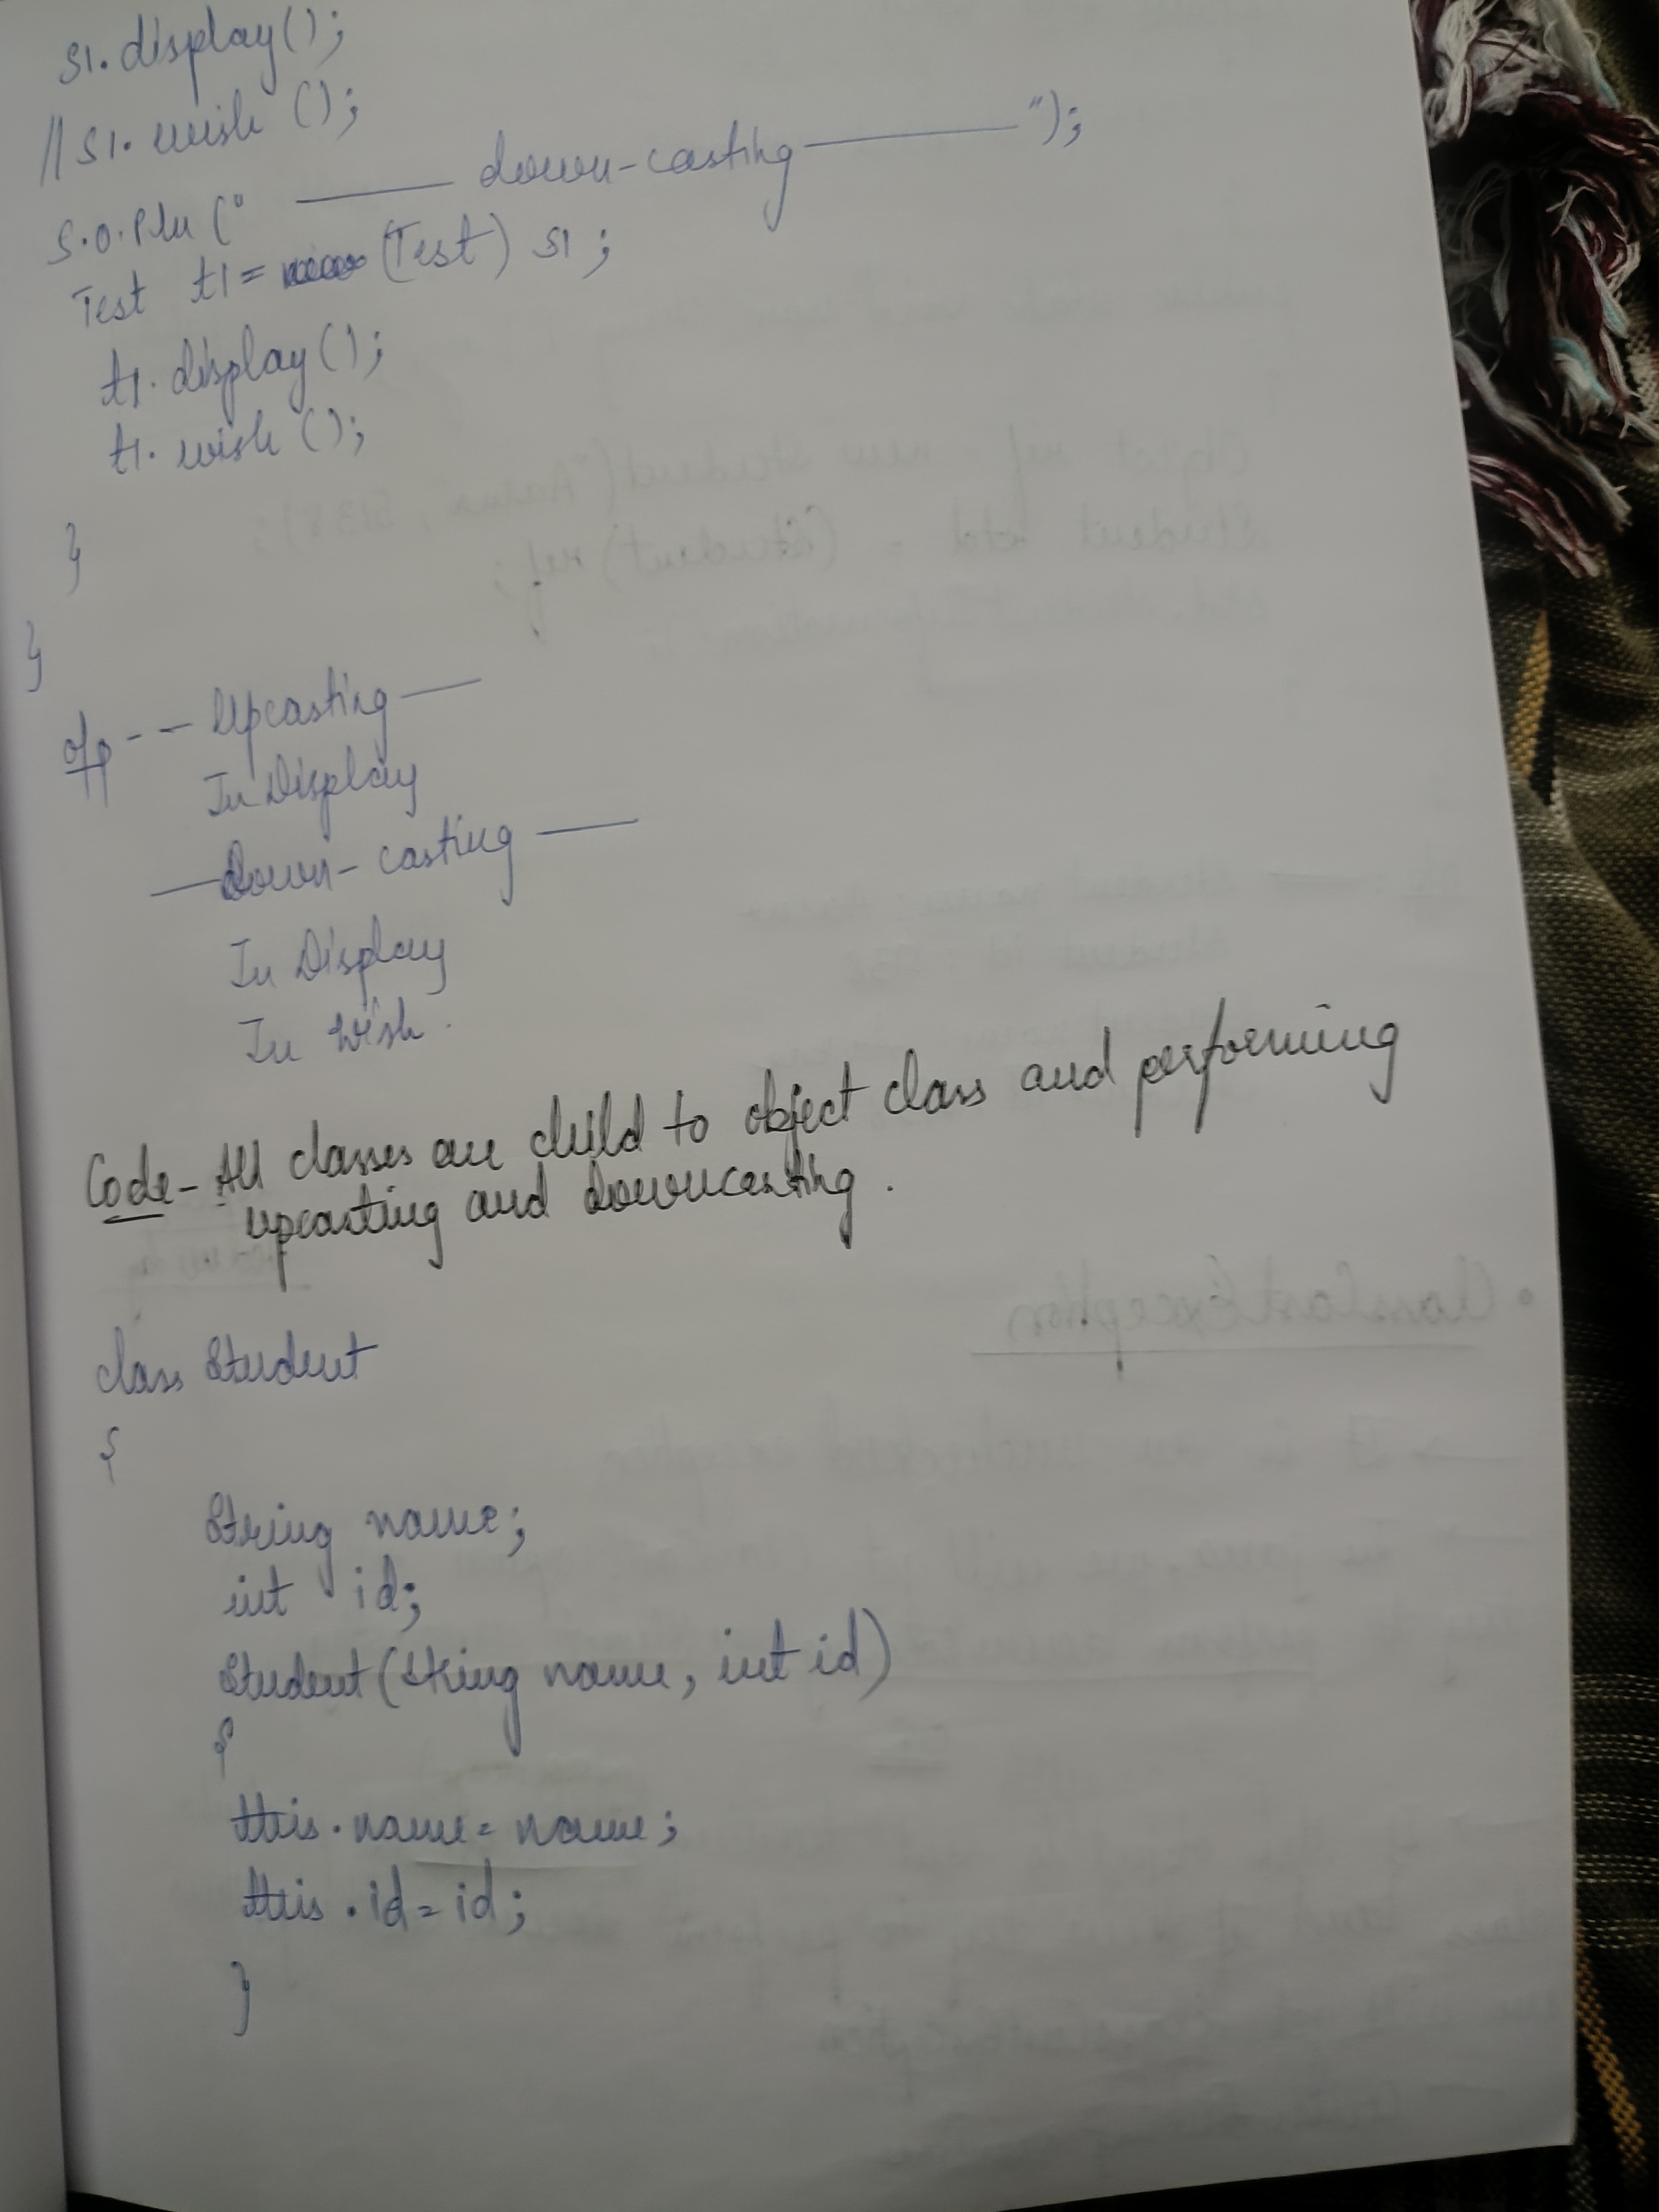 s1.display();
//s1.wish();
S.O.Pln (" —— down-casting —— ");
Test t1 = (Test) s1;
t1.display();
t1.wish();
}
}
o/p - - - Upcasting —
In Display
— Down-casting —
In Display
In Wish.
Code - All classes are child to object class and performing
upcasting and downcasting.
class Student
{
String name;
int id;
Student(String name, int id)
{
this.name = name;
this.id = id;
}